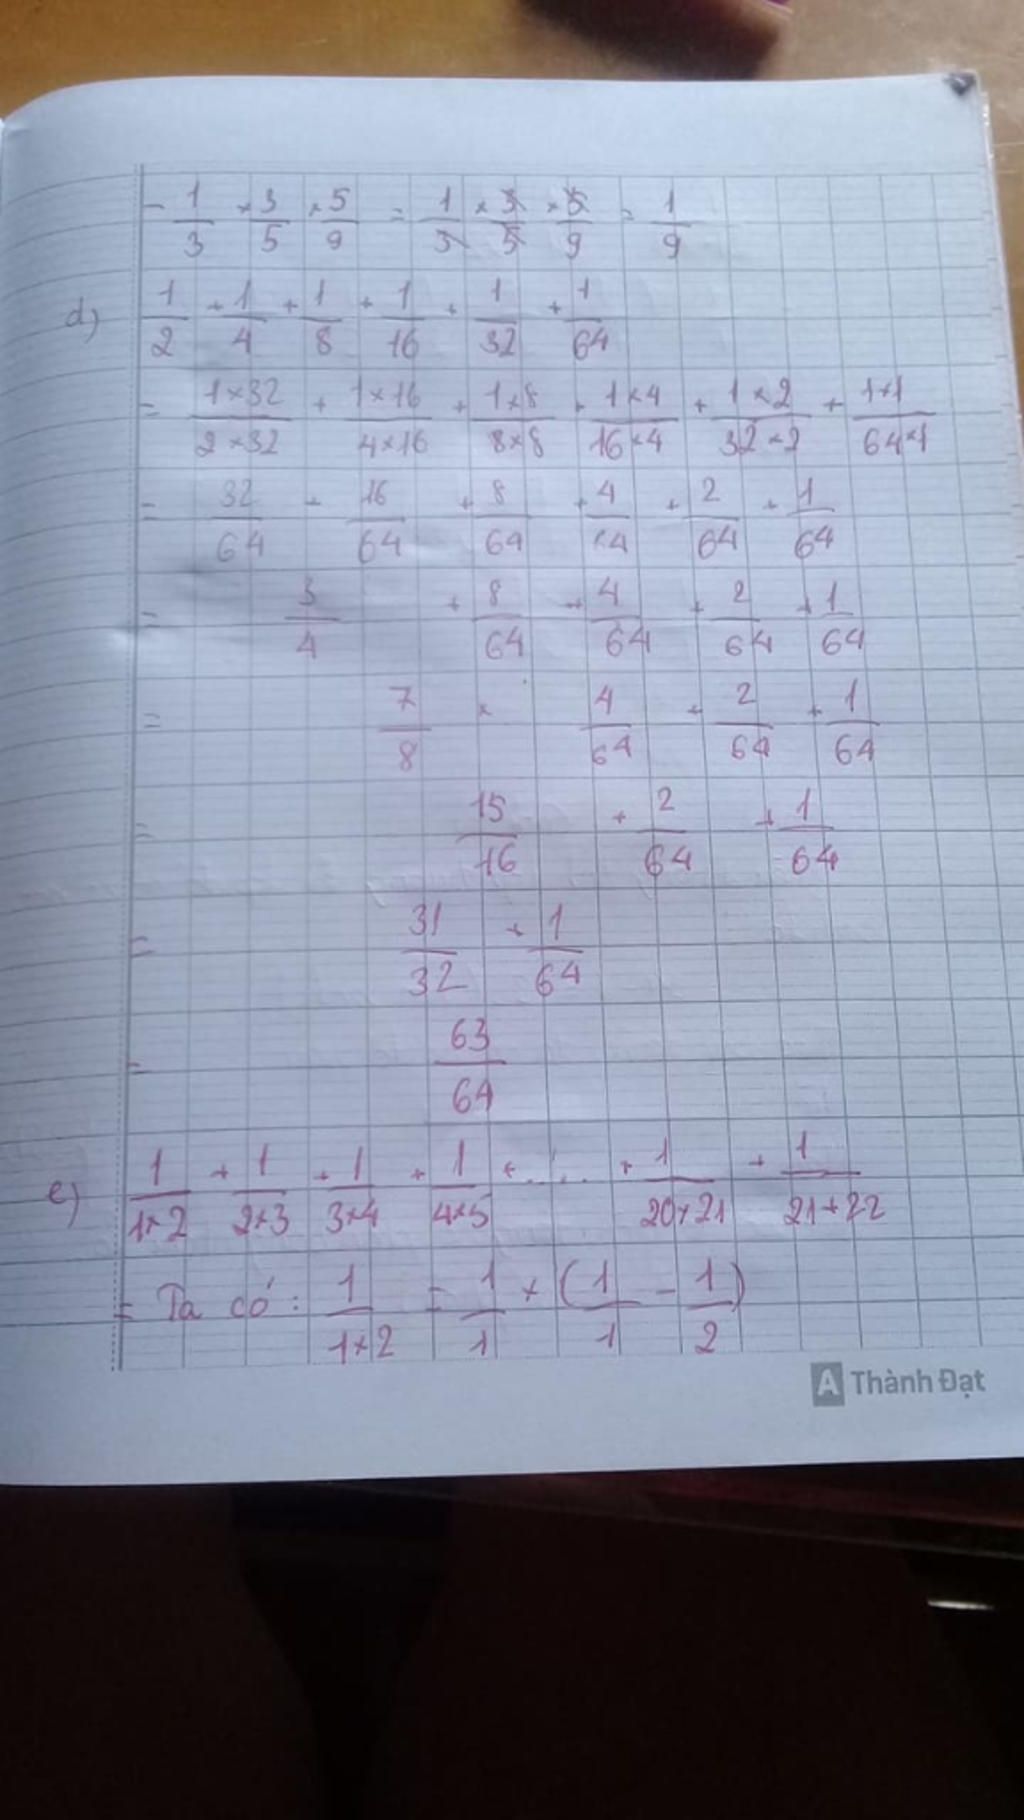 - 1/3 × 3/5 × 5/9 = 1/3 × 3/5 × 5/9 = 1/9
d) 1/2 + 1/4 + 1/8 + 1/16 + 1/32 + 1/64
= 1×32/2×32 + 1×16/4×16 + 1×8/8×8 + 1×4/16×4 + 1×2/32×2 + 1×1/64×1
= 32/64 + 16/64 + 8/64 + 4/64 + 2/64 + 1/64
= 3/4 + 8/64 + 4/64 + 2/64 + 1/64
= 7/8 × 4/64 + 2/64 + 1/64
= 15/16 + 2/64 + 1/64
= 31/32 + 1/64
= 63/64
e) 1/1×2 + 1/2×3 + 1/3×4 + 1/4×5 + ..... + 1/20×21 + 1/21+22
= Ta có: 1/1×2 = 1/1 × (1/1 - 1/2)
A Thành Đạt